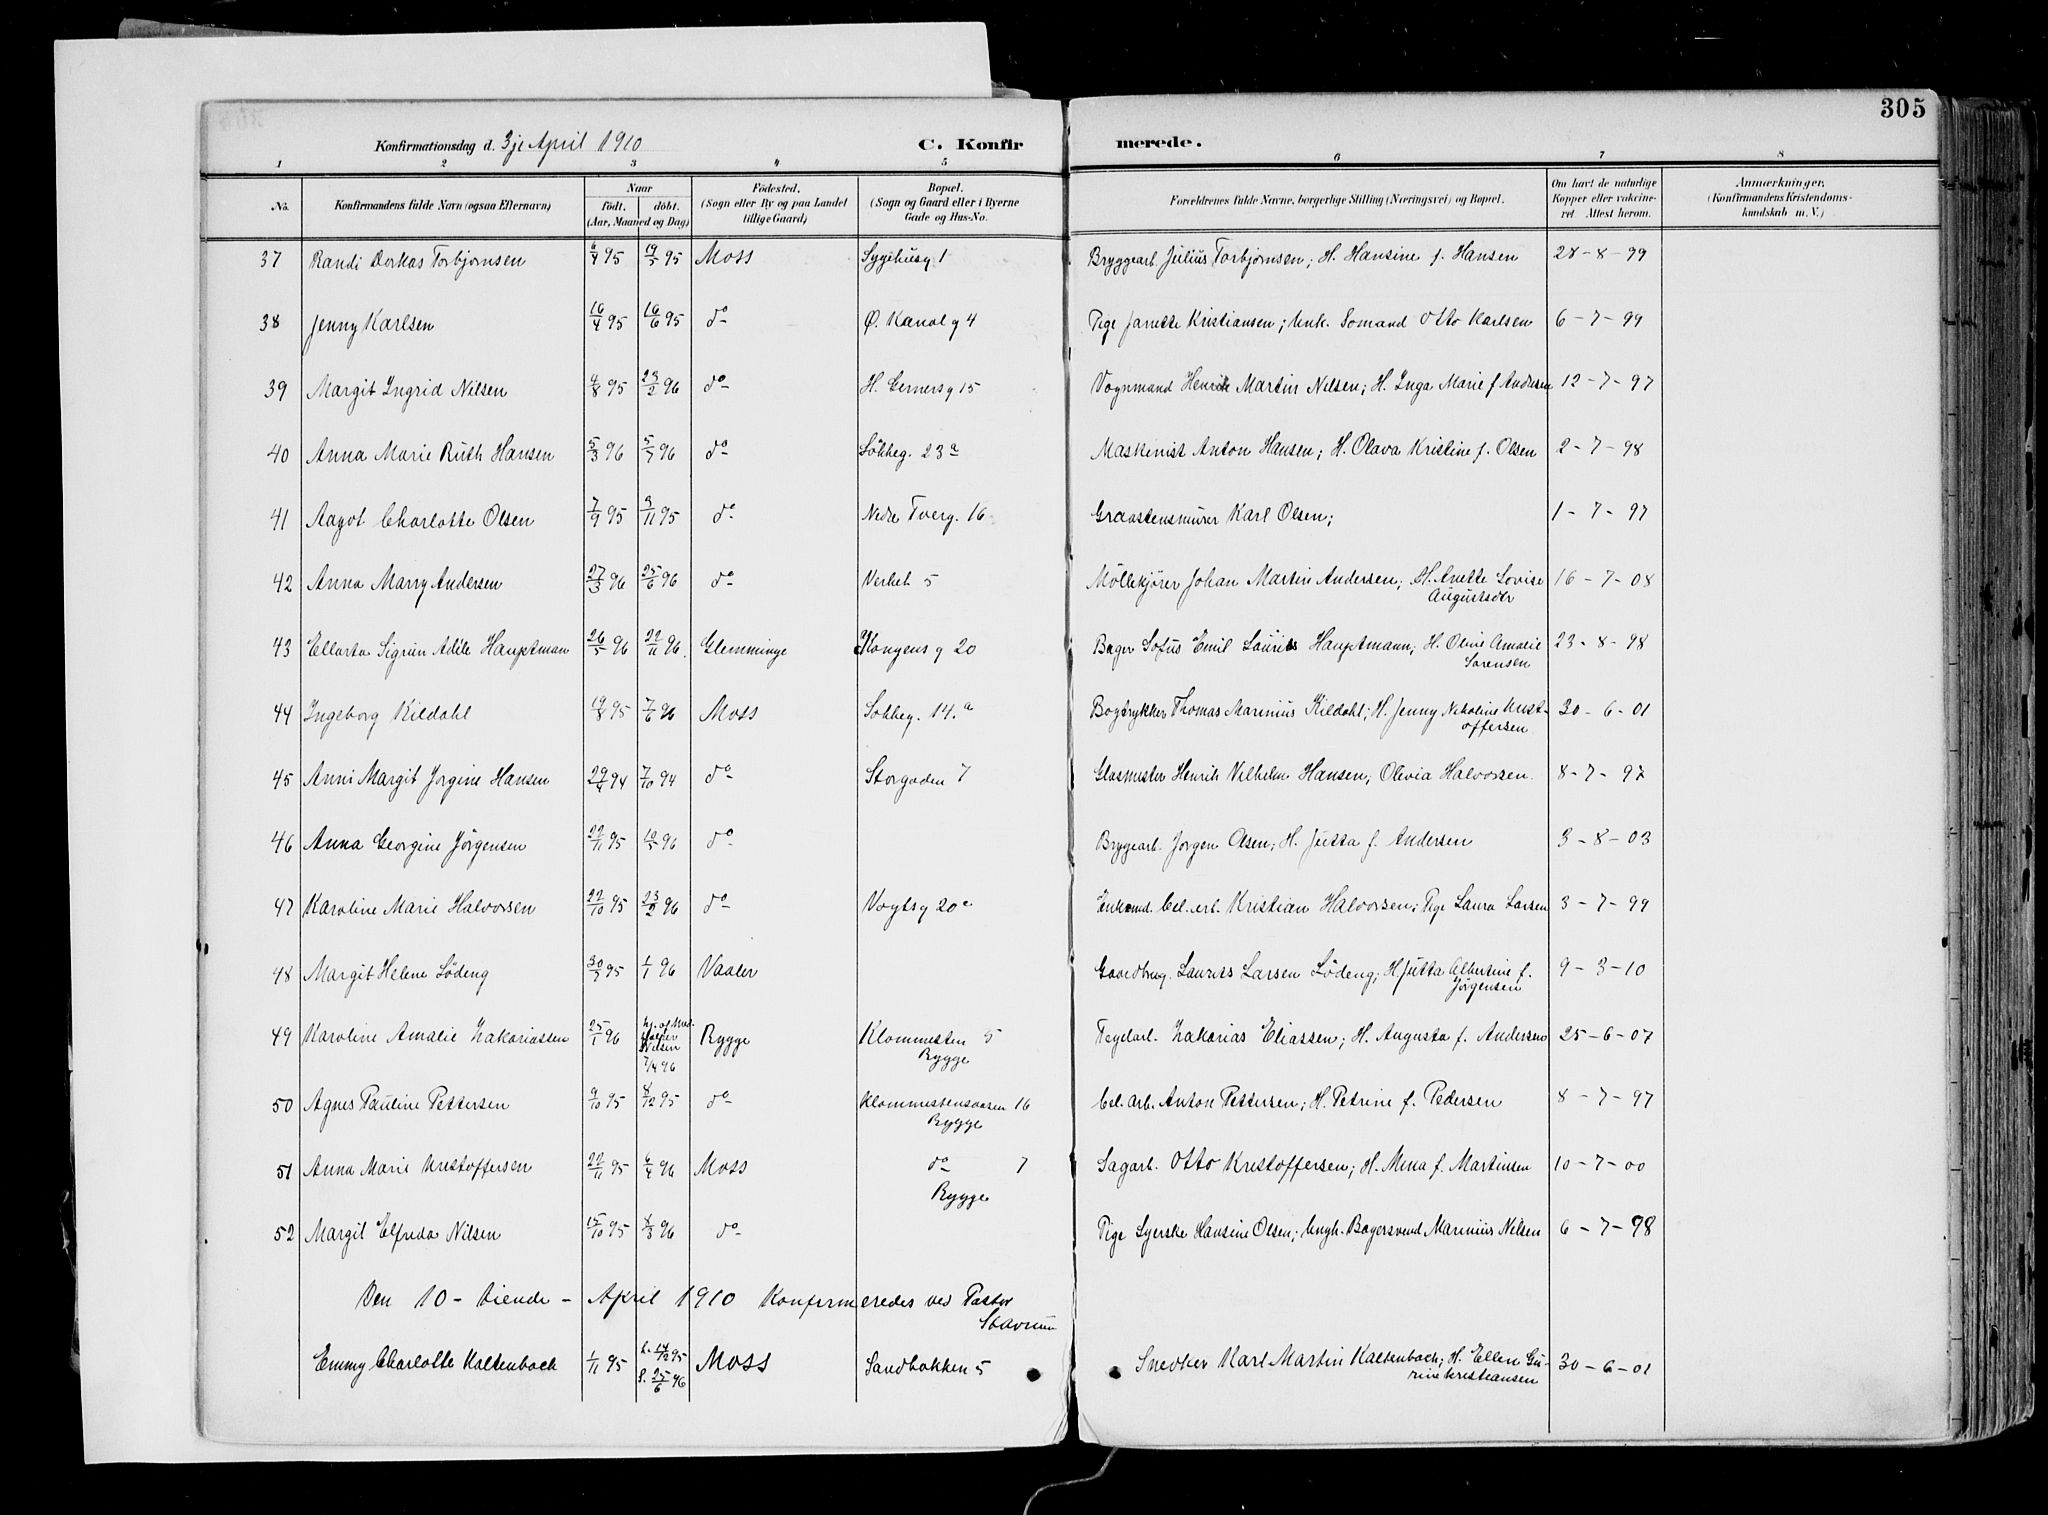 305
Konfirmationsdag d. 3je April 1910 C. Konfirmerede.
1 2 3 4 5 6 7 8
No. Konfirmandens fulde Navn (ogsaa Efternavn) Naar født. døbt. (Aar, Maaned og Dag) Fødested. (Sogn eller By og paa Landet tillige Gaard) Bopæl. (Sogn og Gaard eller i Byerne Gade og Hus-No. Forældrenes fulde Navne, borgerlige Stilling (Næringsvei) og Bopæl. Om havt de naturlige Kopper eller vaccineret. Attest herom. Anmærkninger. (Konfirmandens Kristendomskundskab m. V.)
37 Randi Dorkas Torbjørnsen 4/4 95 19/5 95 Moss Sygehusg 1 Bryggearb. Julius Torbjørnsen; H. Hansine f. Hansen 28-8-99
38 Jenny Karlsen 16/4 95 16/6 95 do Ø. Kanal g 4 Pige Janette Kristiansen; Unk. Sømand Otto Karlsen 6-7-99
39 Margit Ingrid Nilsen 4/8 95 23/2 96 do H. Gerners g 15 Vognmand Henrik Martin Nilsen; H. Inga Marie f Andersen 12-7-97
40 Anna Marie Ruth Hansen 5/3 96 5/7 96 do Løkkeg. 23a Maskinist Anton Hansen; H. Olava Kristine f. Olsen 2-7-98
41 Aagot Charlotte Olsen 7/9 95 3/11 95 do Nedre Tverg. 16 Graastensmurer Karl Olsen; 1-7-97
42 Anna Marry Andersen 27/3 96 25/6 96 do Verket 5 Møllekjører Johan Martin Andersen; H. Anette Lovise 16-7-08
Augustsdtr
43 Ellarta Sigrun Adéle Hauptman 26/5 96 22/11 96. Glemminge Kongens g 20 Bager Sofus Emil Laurits Hauptmann; H. Oline Amalie 23-8-98
Sørensen
44 Ingeborg Kildahl 19/8 95 7/6 96 Moss Løkkeg. 14.a Bogtrykker Thomas Marinius Kildahl; H. Jenny Nikoline Krist- 30-6-01
offersen
45 Anni Margit Jørgine Hansen 29/4 94 7/10 94 do Storgaden 7 Glasmester Henrik Vilhelm Hansen; Olivia Halvorsen. 8-7-97
46 Anna Georgine Jørgensen 22/11 95 10/5 96 do Bryggearb. Jørgen Olsen; H. Jutta f. Andersen 3-8-03
47 Karoline Marie Halvorsen 22/10 95 23/2 96 do Vogts g 20a Enkemd. Cel. arb. Kristian Halvorsen; Pige Laura Larsen 3-7-99
48 Margit Helene Lødeng 30/7 95 1/1 96 Vaaler Gaardbrug. Laurits Larsen Lødeng; H Jutta Albertine f. 9-3-10
Jørgensen
49 Karoline Amalie Zakariassen 25/1 96 Nilsen 7/4 96 Rygge Klommesten 5 Teglarb. Zakarias Eliassen; H. Augusta f. Andersen 25-6-07
Rygge
50 Agnes Pauline Pettersen 9/10 95 8/12 95 do Klommestensaasen 16 Cel. arb. Anton Pettersen; H. Petrine f. Pedersen 8-7-97
Rygge
51 Anna Marie Kristoffersen 22/11 95 6/4 96 Moss do 7 Sagarb. Otto Kristoffersen; H. Mina f. Martinsen 10-7-00
Rygge
52 Margit Elfrida Nilsen 15/10 95 8/3 96 do Pige Syerske Hansine Olsen; Ungk. Bagersvend Marinius Nilsen 6-7-98
Den 10 - tiende - April 1910 Konfirmeredes ved Pastor
Stavnum
Emmy Charlotte Kaltenbach 1/11 95 h. 14/12 95 Moss Sandbakken 5 Snedker Karl Martin Kaltenbach; H. Ellen Gu- 30-6-01
S. 25/6 96 rine Kristiansen